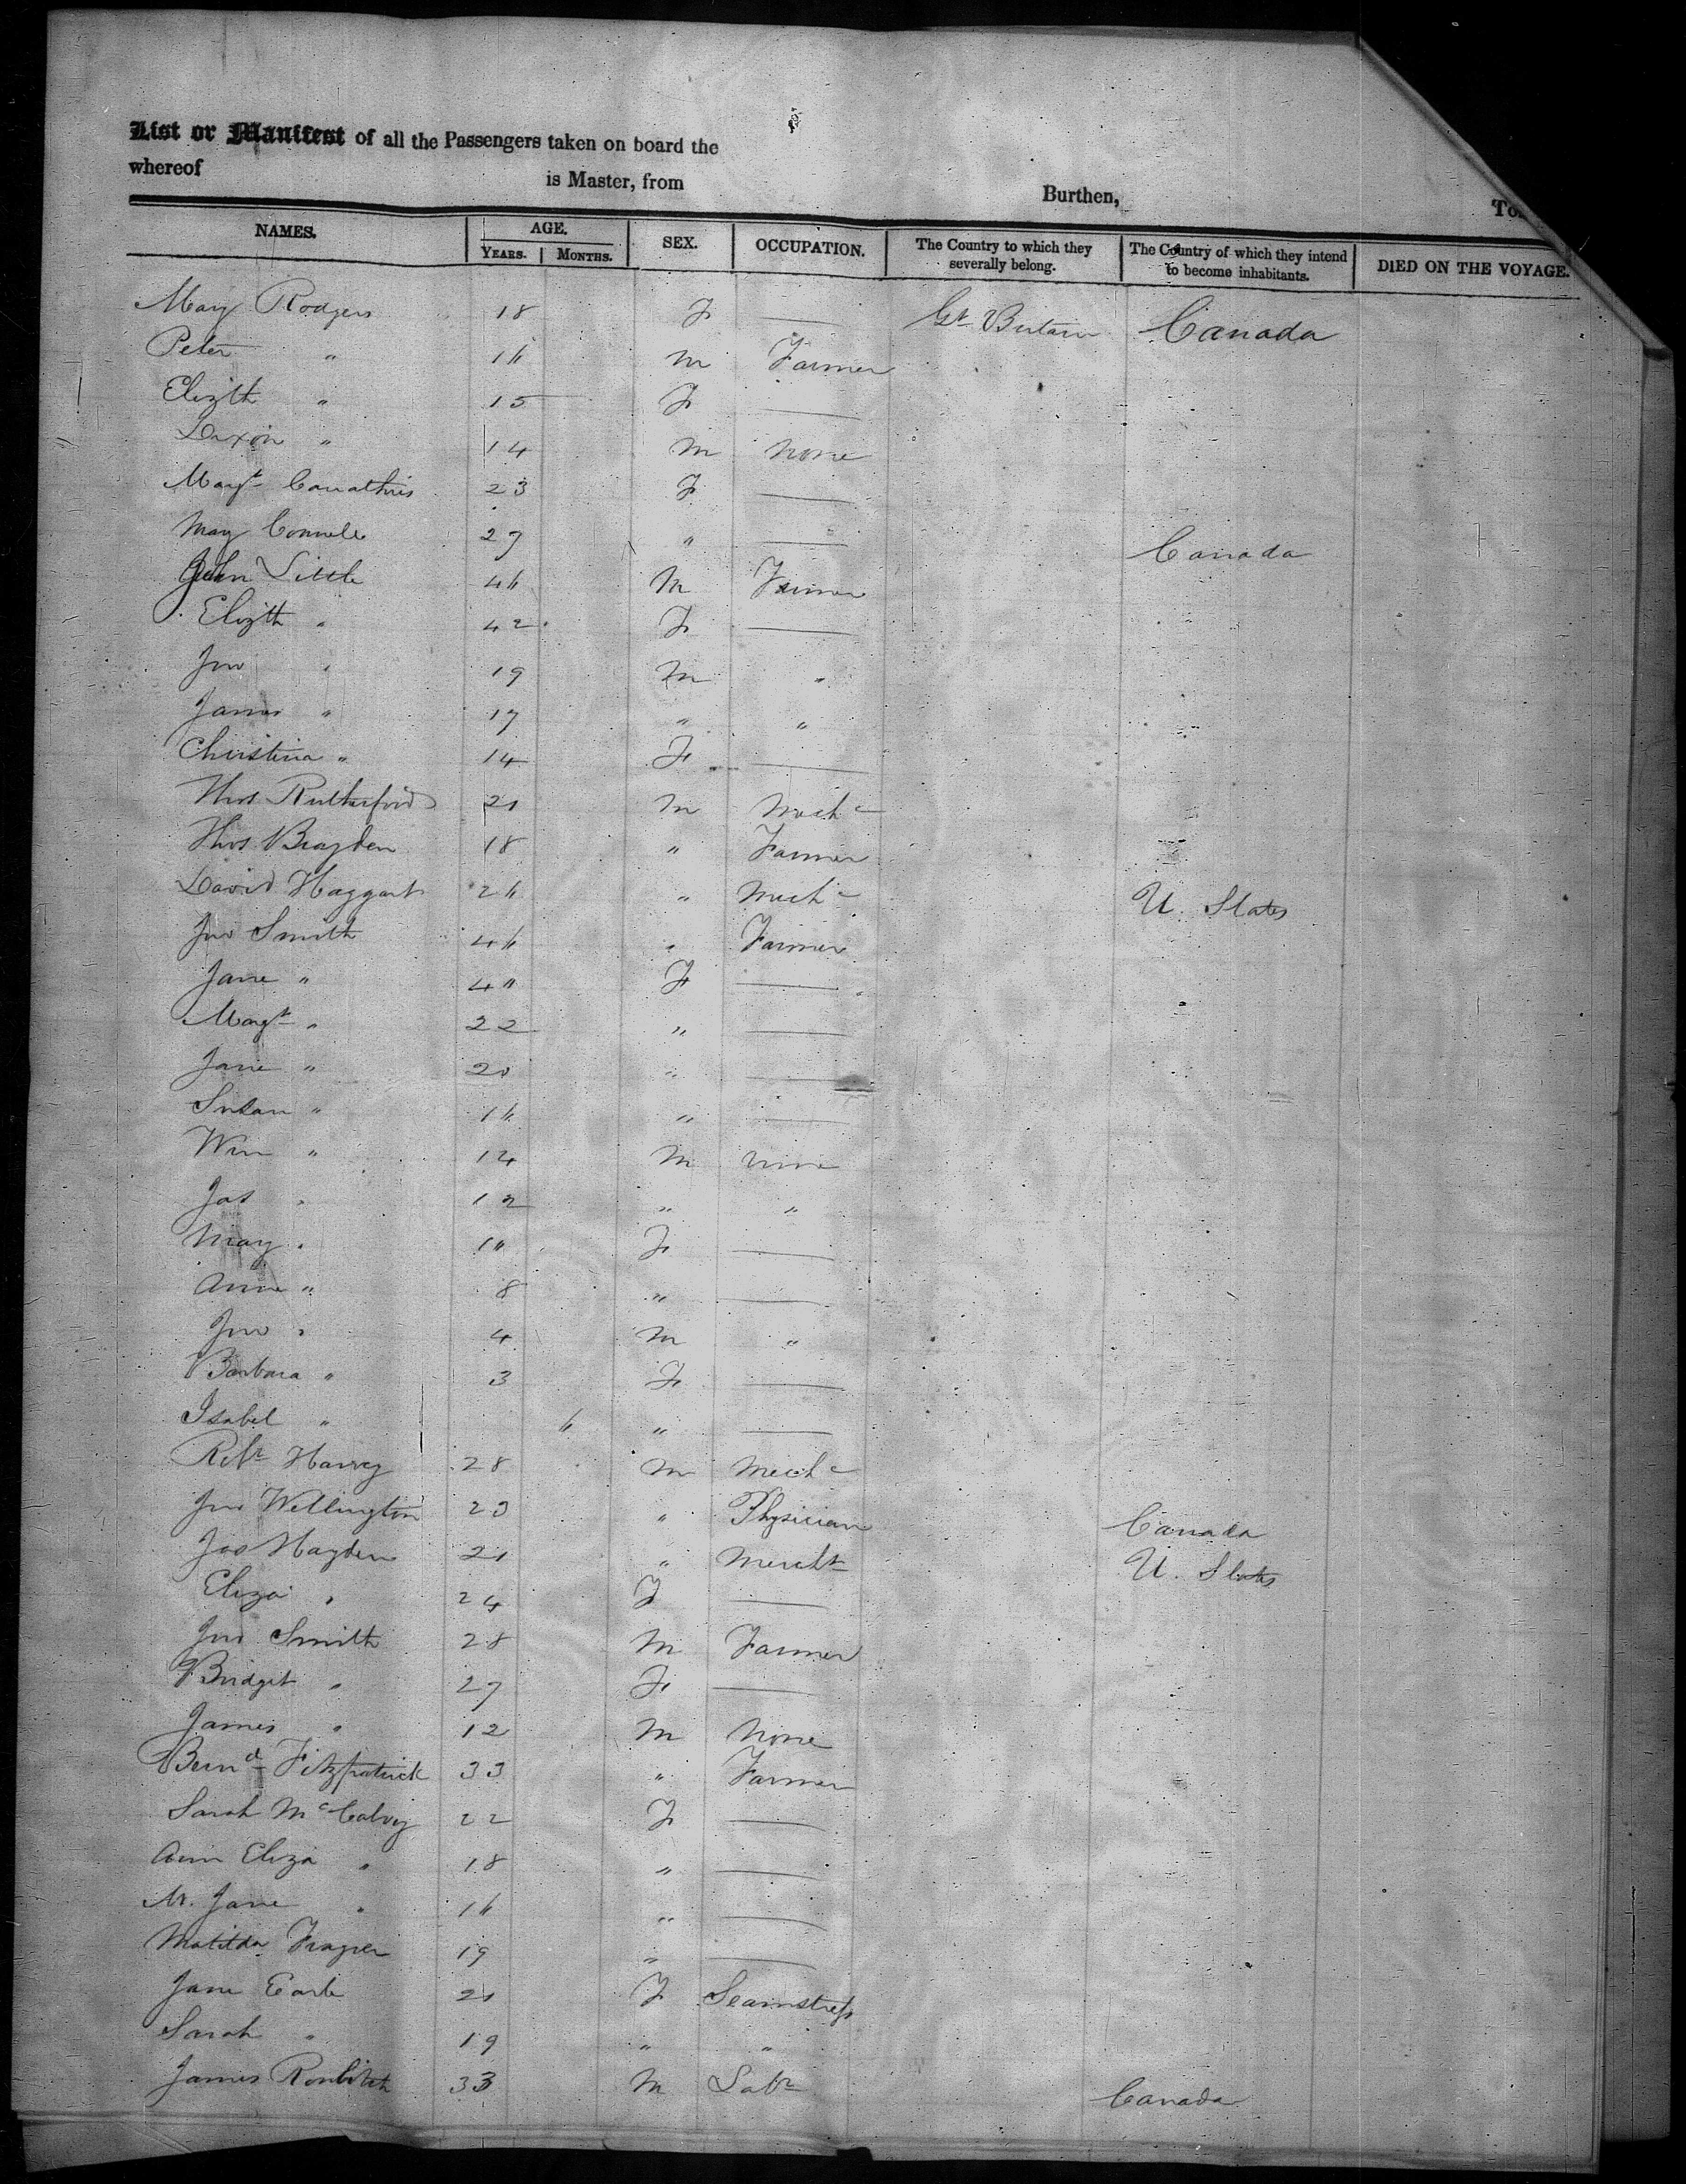 List or Manifest of all the Passengers taken on board the
whereof is Master, from Burthen, To
NAMES. AGE. SEX. OCCUPATION. The Country to which they severally belong. The Country of which they intend to become inhabitants. DIED ON THE VOYAGE.
YEARS. MONTHS.
Mary Rodgers 18 F — Gt Britain Canada
Peter " 16 M Farmer
Elizth " 15 F —
Dixon " 14 M None
Margt 23 F —
Mary 27 " — Canada
John Little 46 M Farmer
Elizth " 42 F —
Jno " 19 M "
James " 17 " "
Christina " 14 F —
Thos Rutherford 21 M Mechc
Thos Brayden 18 " Farmer
David Haggart 26 " Mechc U. States
Jno Smith 46 " Farmer
Jane " 40 F —
Margt " 22 " —
Jane " 20 " —
Susan " 16 " —
Wm " 14 M None
Jas " 12 " "
Mary " 10 F —
Anne " 8 " —
Jno " 4 M "
Barbara " 3 F —
Isabel " 6 " —
Robt Harvey 28 M Mechc
Jno Wellington 23 " Physician Canada
Jos Hayden 21 " Mercht U. States
Eliza " 24 F —
Jno Smith 28 M Farmer
Bridget " 27 F —
James " 12 M None
Bernd Fitzpatrick 33 " Farmer
Sarah McCalvey 22 F —
Ann Eliza " 18 " —
M. Jane " 16 " —
Matilda Frazier 19 " —
Jane Earle 21 F Seamstress
Sarah " 19 " "
James 33 M Labr Canada